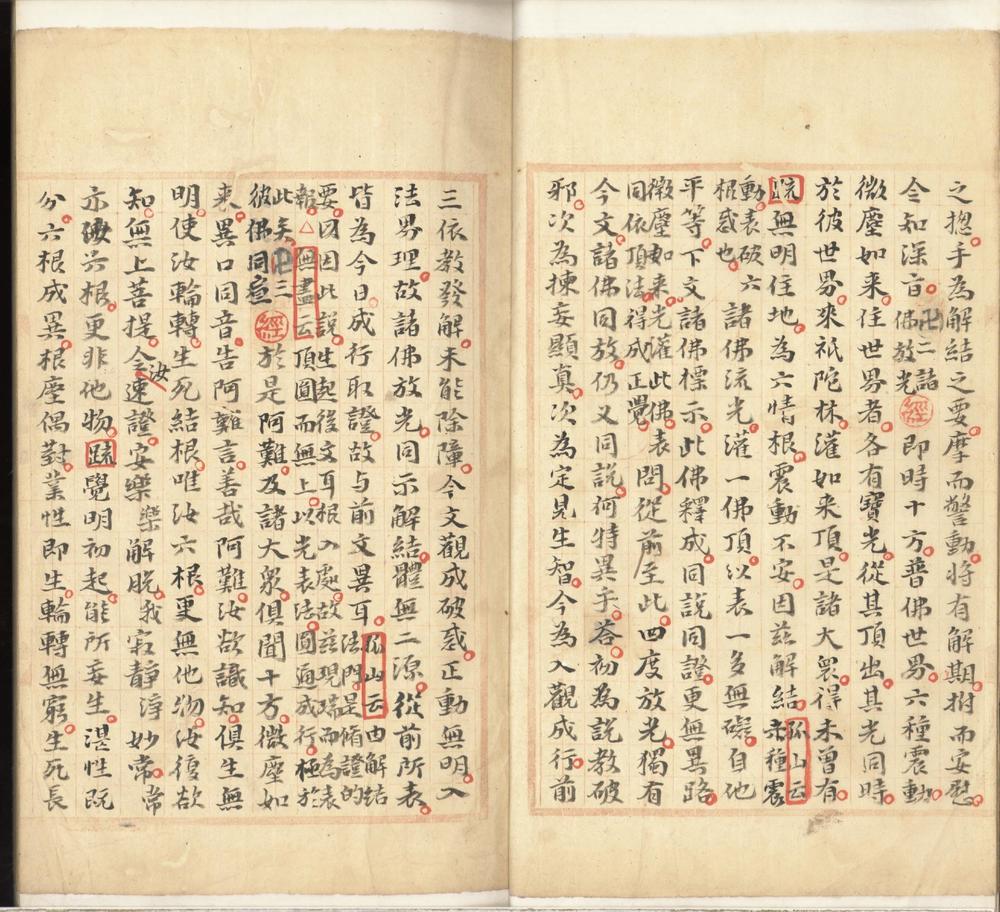 之揔手為解結之要摩而警動將有解期拊而安慰
令知深旨卍二諸佛放光經即時十方普佛世界六種震動
微塵如來住世界者各有寶光從其頂出其光同時
於彼世界來祇陀林灌如來頂是諸大眾得未曾有
疏無明住地為六情根震動不安因茲解結孤山云六種震
動表破六根惑也諸佛流光灌一佛頂以表一多無礙自他
平等下文諸佛標示此佛釋成同說同證更無異路
微塵如來光灌此佛表同依頂法得成正覺問從前至此四度放光獨有
今文諸佛同放仍又同說何特異乎荅初為說教破
邪次為揀妄顯真次為定見生智今為入觀成行前
三依教發解未能除障今文觀成破惑正動無明入
法界理故諸佛放光同示解結體無二源從前所表
皆為今日成行取證故与前文異耳孤山云由解結法門是脩證的
要因因此說生起後文耳根入處故茲現瑞而為表
報△無盡云頂圓而無上以光表法圓通成行極於
此矣卍三彼佛同宣經於是阿難及諸大眾俱聞十方微塵如
來異口同音告阿難言善哉阿難汝欲識知俱生無
明使汝輪轉生死結根唯汝六根更無他物汝復欲
知無上菩提令汝速證安樂解脫寂靜淨妙常
亦汝六根更非他物疏覺明初起能所妄生湛性既
分六根成異根塵偶對業性即生輪轉無窮生死長